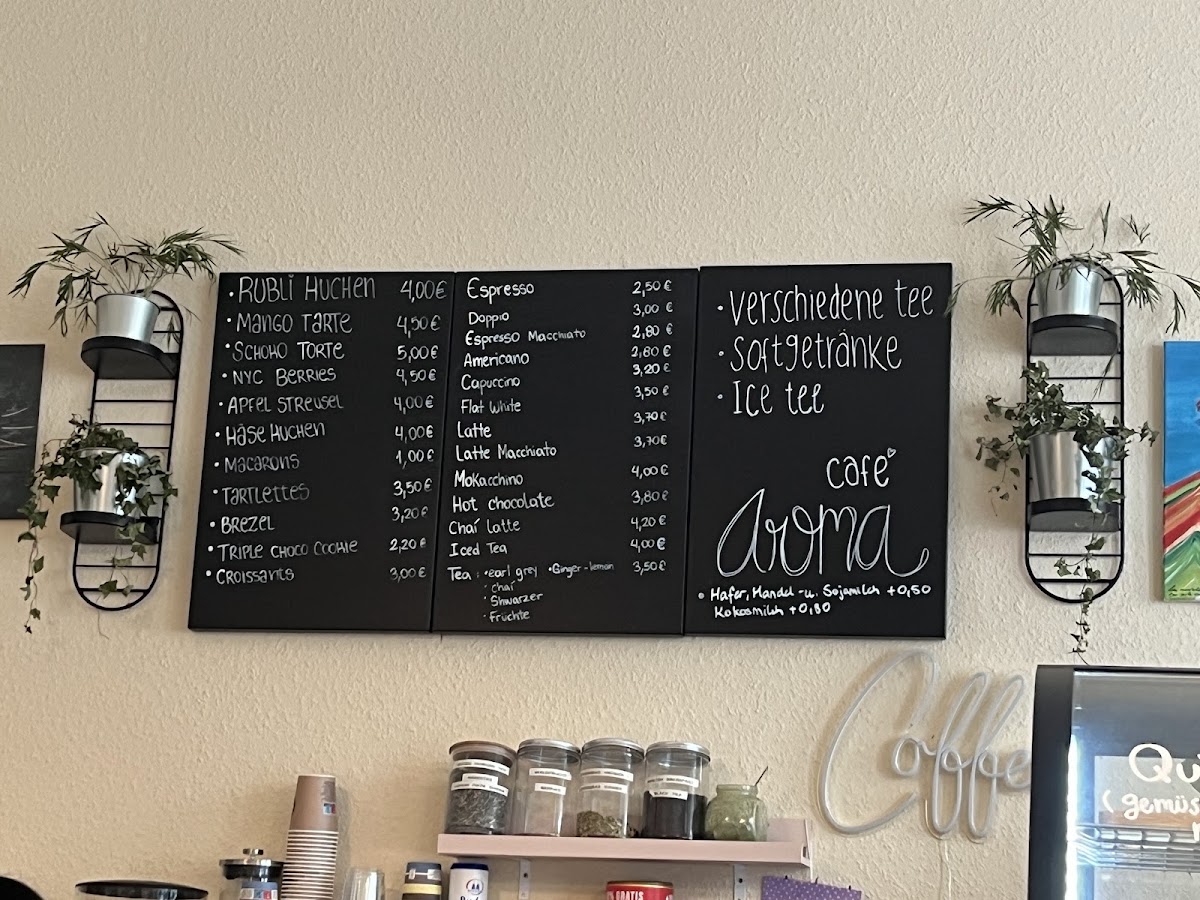 • RÜBLI KUCHEN 4,00€
• MANGO TARTE 4,50€
• SCHOKO TORTE 5,00€
• NYC BERRIES 4,50€
• APFEL STREUSEL 4,00€
• KÄSE KUCHEN 4,00€
• MACARONS 1,00€
• TARTLETTES 3,50€
• BREZEL 3,20€
• TRIPLE CHOCO COOKIE 2,20€
• CROISSANTS 3,00€
Espresso 2,50€
Doppio 3,00€
Espresso Macchiato 2,80€
Americano 2,80€
Capuccino 3,20€
Flat White 3,50€
Latte 3,70€
Latte Macchiato 3,70€
Mokacchino 4,00€
Hot chocolate 3,80€
Chai Latte 4,20€
Iced Tea 4,00€
Tea: • earl grey • Ginger-lemon 3,50€
• chai
• Shwarzer
• Früchte
• verschiedene tee
• Softgetränke
• Ice tee
cafe
Aroma
• Hafer, Mandel-u. Sojamilch +0,50
Kokosmilch +0,80
Coffe
Qu
(gemüs
GRATIS